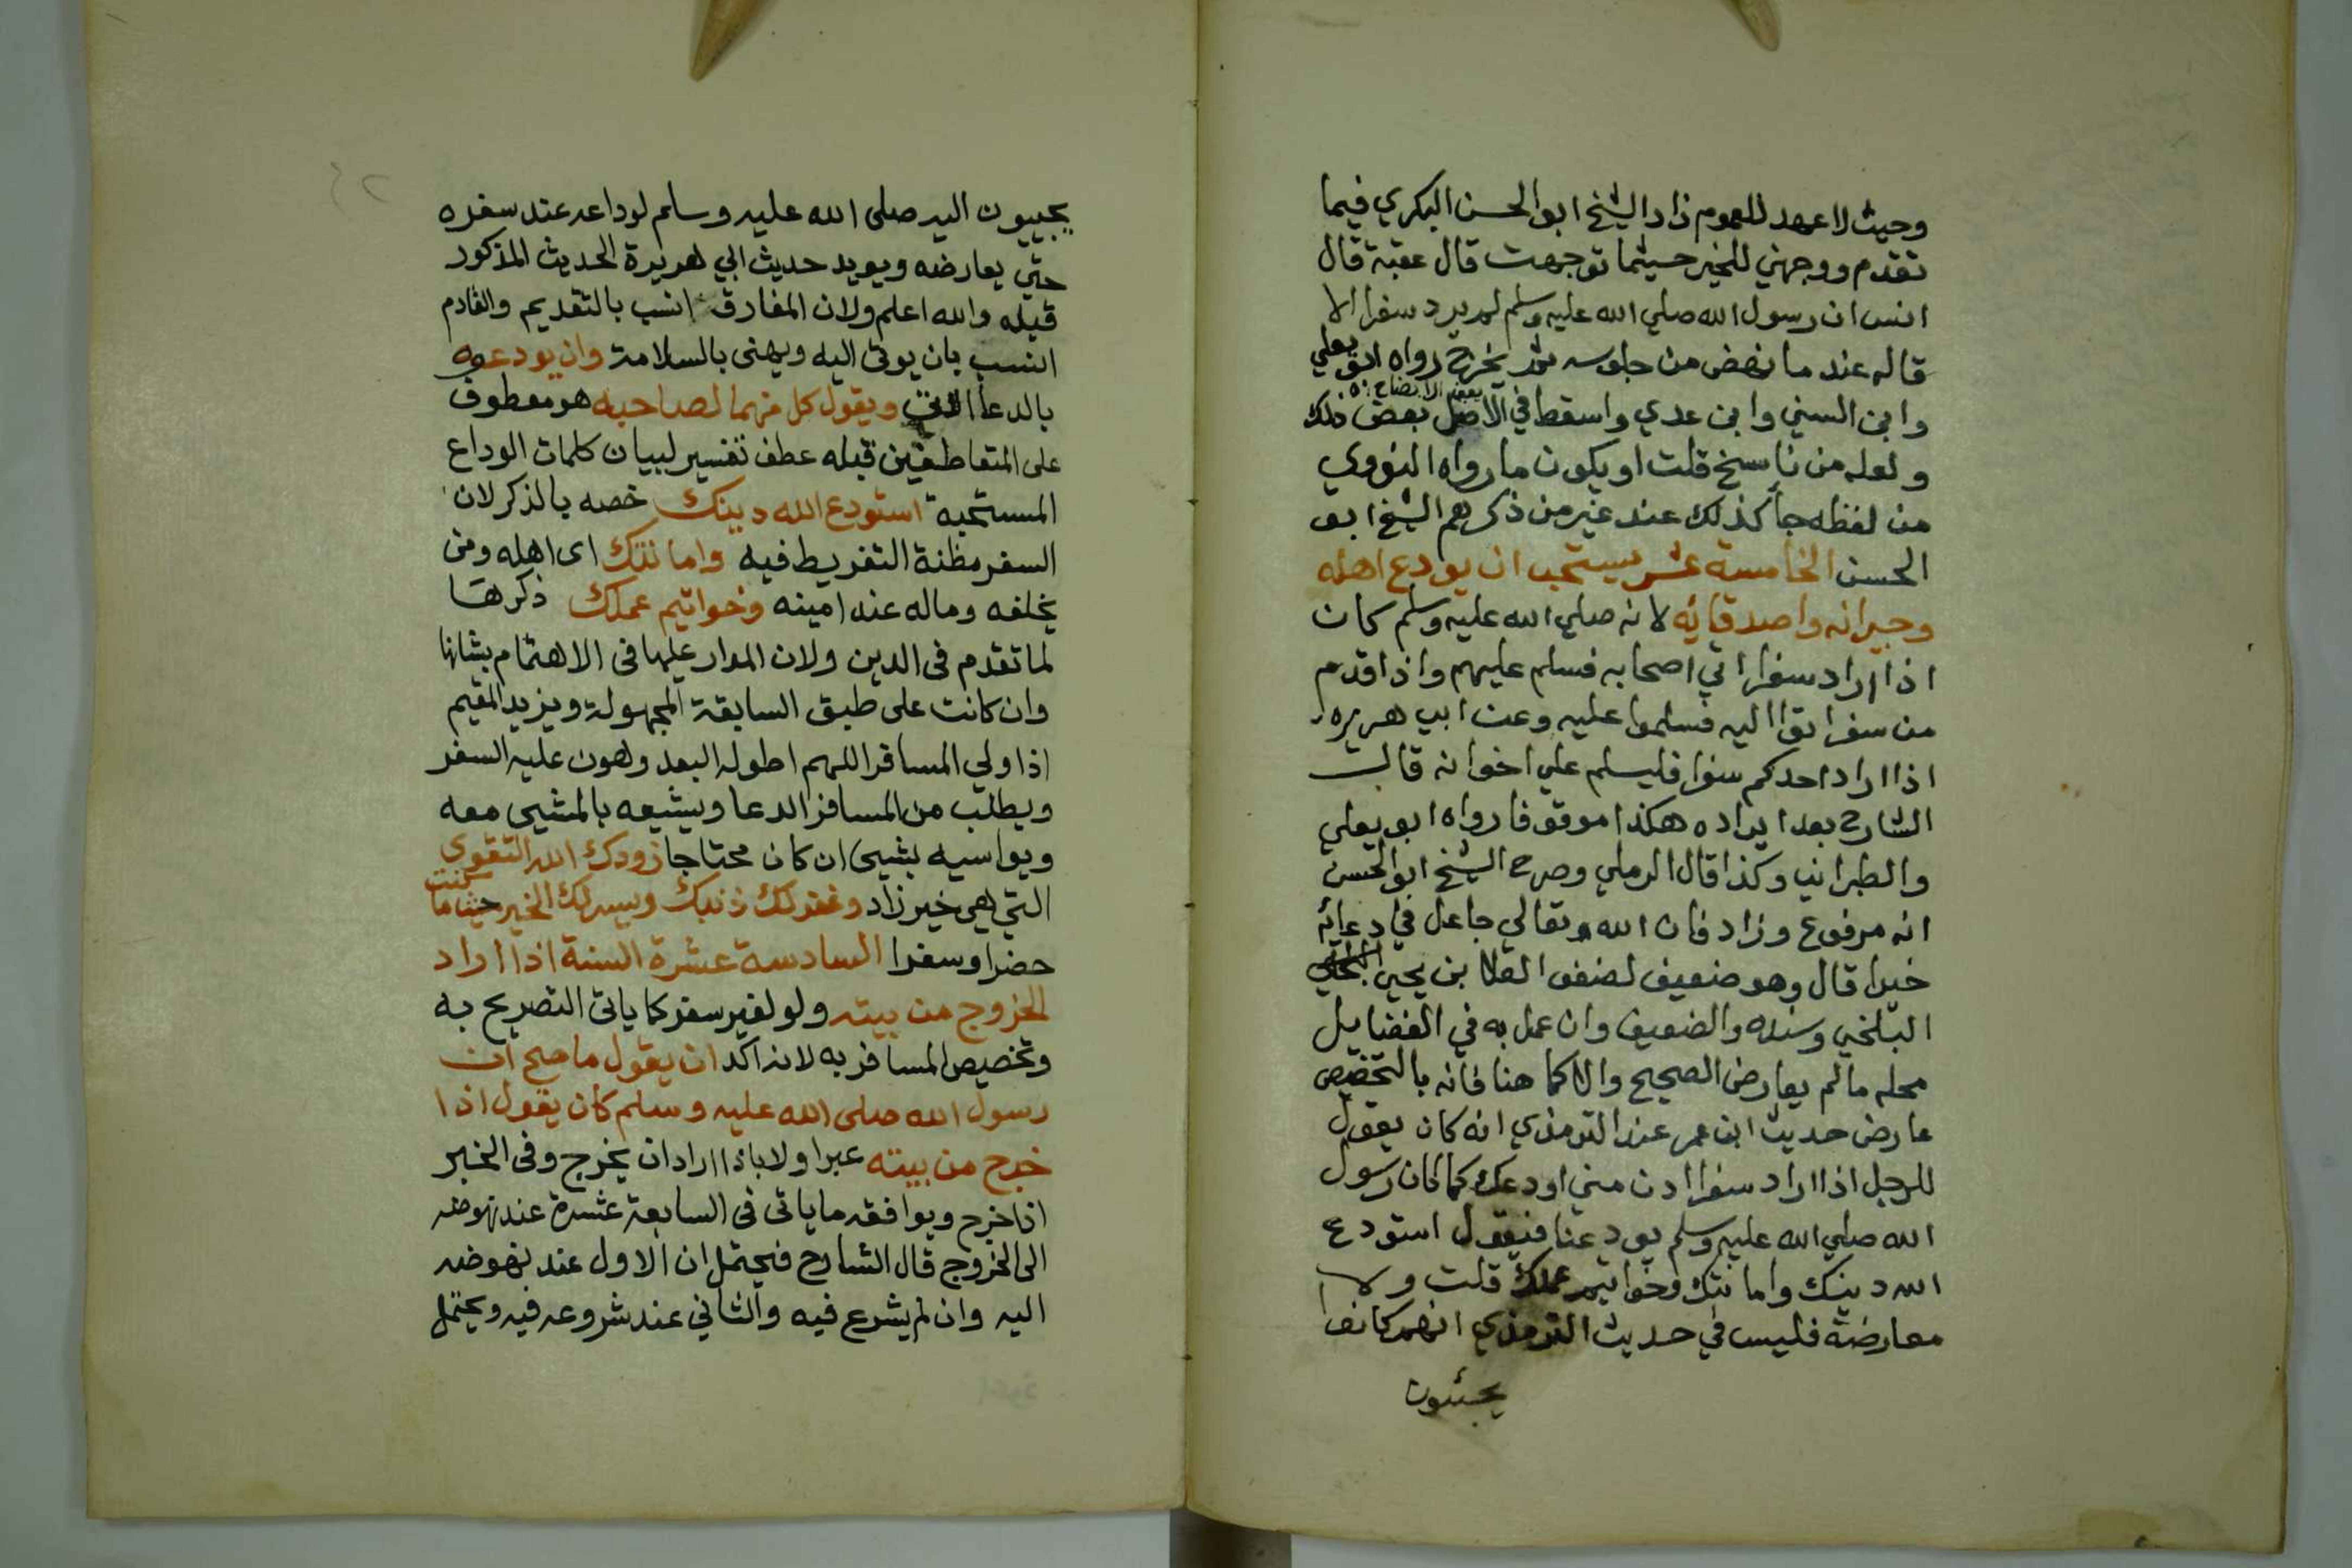 وحيث لا عهد للعموم زاد الشيخ ابو الحسن البكري فيما
تقدم ووجهني للخير حيثما توجهت قال عقبة قال
انس ان رسول الله صلي الله عليه وسلم لم يرد سفرا الا
قاله عند ما نهض من جلوسه ثم يخرج رواه ابو يعلي
وابن السني وابن عدي واسقط في الاصل بعض ذلك
ولعله من ناسخ قلت او يكون ما رواه النووي
من لفظه جا كذلك عند غير من ذكرهم الشيخ ابو
الحسن الخامسة عشر يستحب ان يودع اهله
وجيرانه واصدقايه لانه صلي الله عليه وسلم كان
اذا اراد سفرا اتي اصحابه فسلم عليهم واذا قدم
من سفر اتوا اليه فسلموا عليه وعن ابي هريره
اذا اراد احدكم سفرا فليسلم علي اخوانه قال
الشارح بعد ايراده هكذا موقوفا رواه ابو يعلي
والطبراني وكذا قال الرملي وصرح الشيخ ابو الحسن
انه مرفوع وزاد فان الله تعالي جاعل في دعايه
خيرا قال وهو ضعيف لضعف العلا بن يحيي
البلخي وسنده والضعيف وان عمل به في الفضايل
محله ما لم يعارض الصحيح والا كما هنا فانه بالتخصيص
عارض حديث ابن عمر عند الترمذي انه كان يقول
للرجل اذا اراد سفرا ادن مني اودعك كما كان رسول
الله صلي الله عليه وسلم يودعنا فيقول استودع
الله دينك وامانتك وخواتيم عملك قلت ولا
معارضة فليس في حديث الترمذي انهم كانوا
يجيئون
يجييون اليه صلى الله عليه وسلم لوداعه عند سفره
حتي يعارضه ويويد حديث ابي هريرة الحديث المذكور
قبله والله اعلم ولان المفارق انسب بالتقديم والقادم
انسب بان يوتى اليه ويهنى بالسلامة وان يودعوه
بالدعا الاتي ويقول كل منهما لصاحبه هو معطوف
على المتعاطفين قبله عطف تفسير لبيان كلمات الوداع
المستحبة استودع الله دينك خصه بالذكر لان
السفر مظنة التفريط فيه وامانتك اى اهله ومن
يخلفه وماله عند امينه وخواتيم عملك ذكرها
لما تقدم فى الدين ولان المدار عليها فى الاهتمام بشانها
وان كانت على طبق السابقة المجهولة ويزيد المقيم
اذا ولي المسافر اللهم اطو له البعد وهون عليه السفر
ويطلب من المسافر الدعا ويشيعه بالمشي معه
ويواسيه بشيى ان كان محتاجا زودك الله التقوى
التي هي خير زاد وغفر لك ذنبك ويسر لك الخير حيثما كنت
حضرا وسفرا السادسة عشرة السنة اذا اراد
الخروج من بيته ولو لغير سفر كما ياتى التصريح به
وتخصيص المسافر به لانه اكد ان يقول ما صح ان
رسول الله صلى الله عليه وسلم كان يقول اذا
خرج من بيته عبر اولا باذا اراد ان يخرج وفى الخبر
اذا خرج ويوافقه ما ياتى فى السابعة عشرة عند نهوضه
الى الخروج قال الشارح فيحتمل ان الاول عند نهوضه
اليه وان لم يشرع فيه والثاني عند شروعه فيه ويحتمل